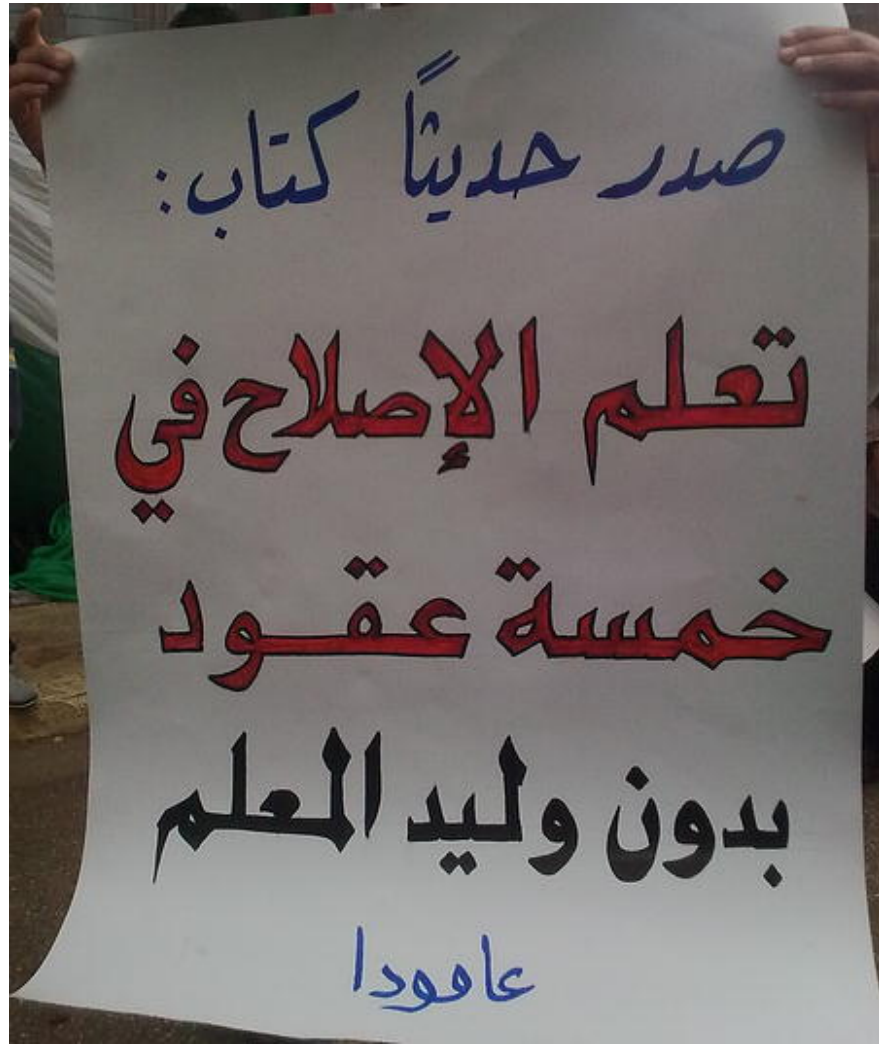 صدر حديثاً كتاب:
تعلم الإصلاح في
خمسة عقود
بدون وليد المعلم
عامودا